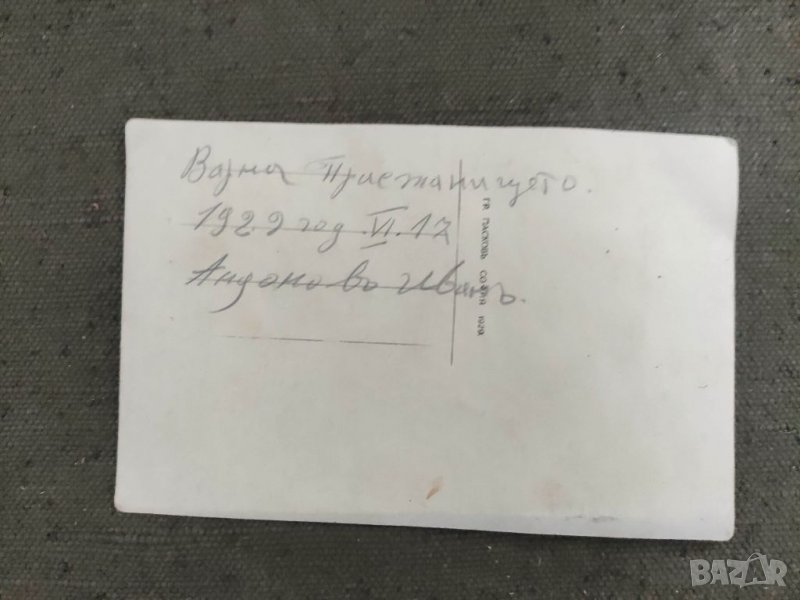 Варна Приежанището.
1929 год. VI. 17
Андоновъ Иванъ.
ГР. ПАСКОВЪ СОФИЯ 1929
BAZAR